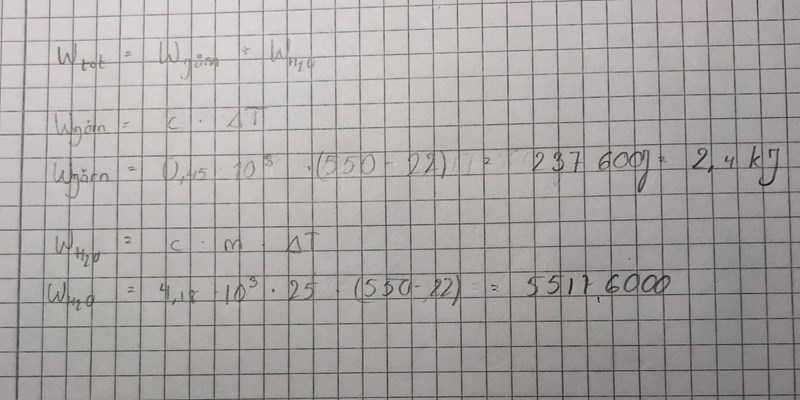 W_tot = W_järn + W_H₂O
W_järn = c · ΔT
W_järn = 0,45 · 10³ · (550 - 22) = 237 600J = 2,4 kJ
W_H₂O = c · m · ΔT
W_H₂O = 4,18 · 10³ · 25 · (550 - 22) = 5517,6000